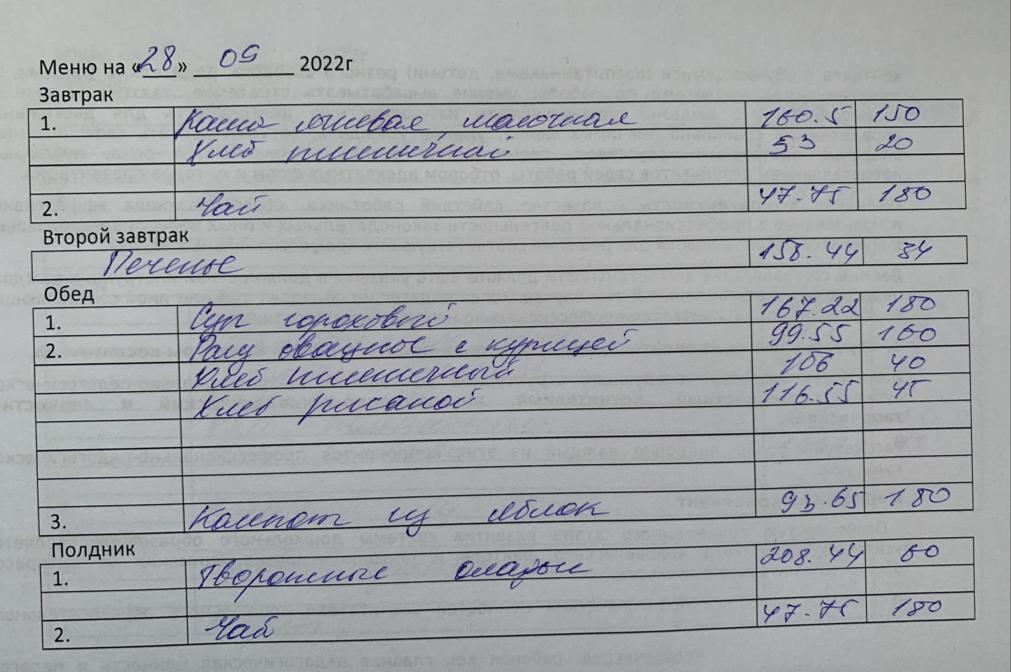 Меню на «28» 09 2022г
Завтрак
1. Каша пшевая молочная 160.5 150
Хлеб пшеничный 53 20
2. Чай 47.75 180
Второй завтрак
Печенье 158.44 34
Обед
1. Суп гороховый 167.22 180
2. Рагу овощное с курицей 99.55 160
Хлеб пшеничный 106 40
Хлеб ржаной 116.55 45
3. Компот из яблок 93.65 180
Полдник
1. Творожные оладьи 208.44 60
2. Чай 47.75 180